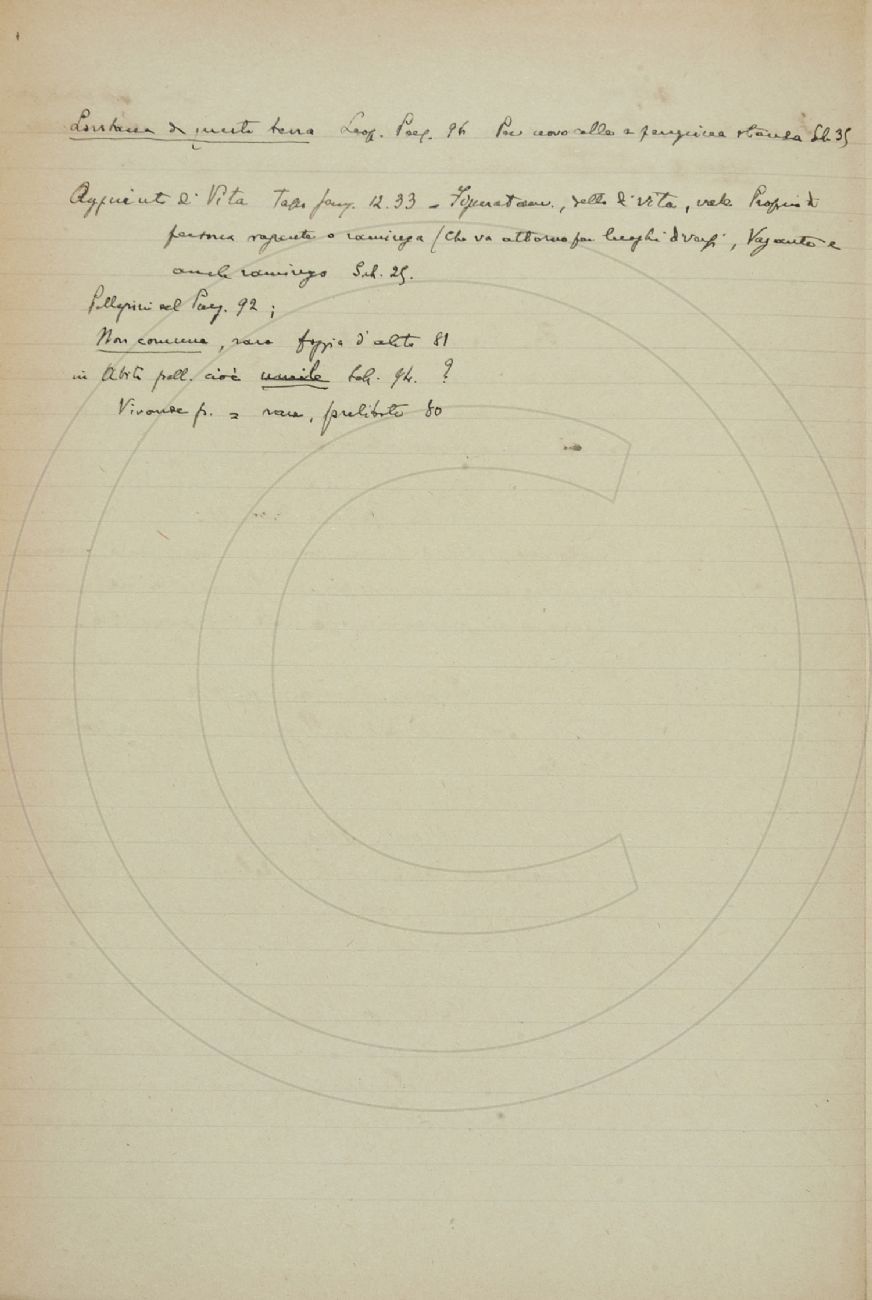 Lontana da questa terra Leop. Pag. 96 Per novo calle a peregrina stanza Sch. 35
Aggiunto di Vita Tass. Ger. 12. 33 - Figuratam., detto di vita, vale Propria di
persona vagante o raminga (Che va attorno per luoghi diversi, Vagante e
anche ramingo Sch. 25.
Pellegrini nel Pag. 92;
Non comune, rara foggia d'abito 81
in Abiti pell. cioè umile Sch. 94. ?
Vivande p. = rara, prelibata 80